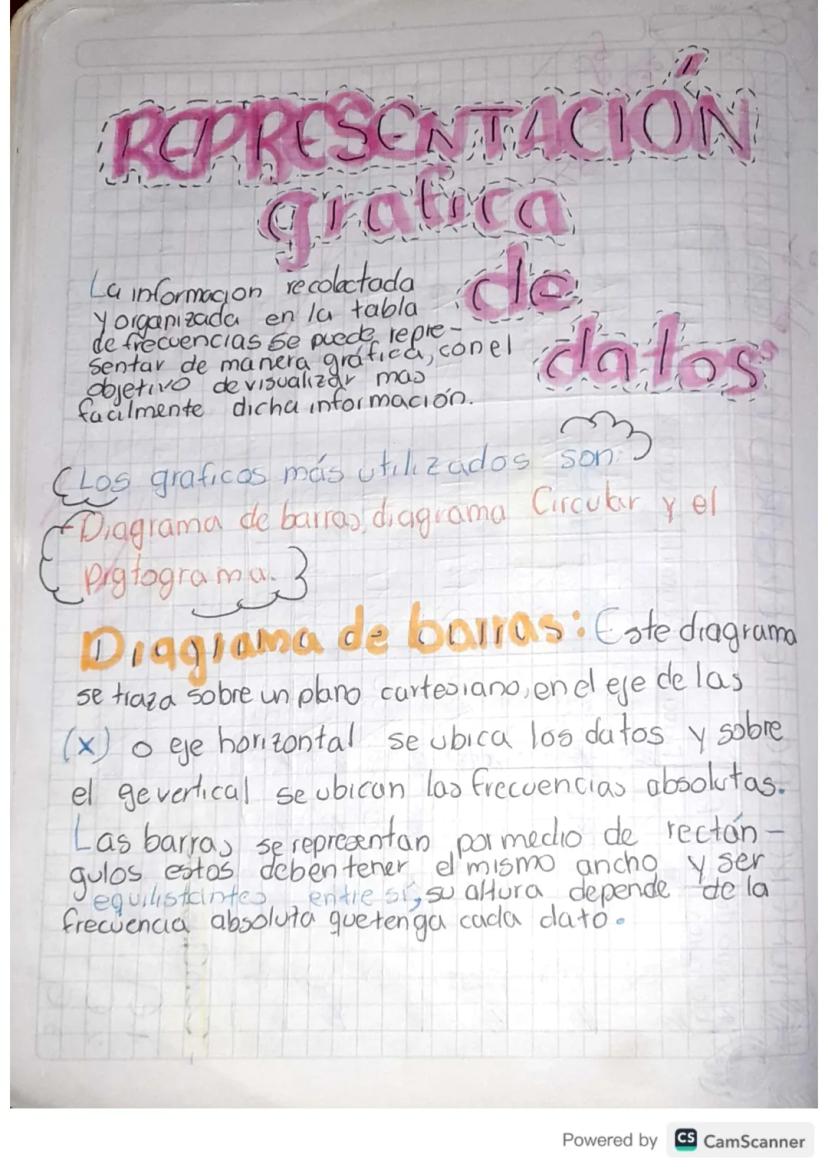 REPRESENTACIÓN
grafica
de
datos
La informacion recolectada
y organizada en la tabla
de frecuencias se puede repre-
sentar de manera gráfica, con el
objetivo de visualizar mas
facilmente dicha información.
Los graficos más utilizados son:
-Diagrama de barras, diagrama Circular y el
pigtograma.
Diagrama de barras: Este diagrama
se traza sobre un plano cartesiano, en el eje de las
(x) o eje horizontal se ubica los datos y sobre
el ge vertical se ubican las frecuencias absolutas.
Las barras se representan por medio de rectán-
gulos estos deben tener el mismo ancho y ser
equilistantes entre sí, su altura depende de la
frecuencia absoluta que tenga cada dato.
Powered by CS CamScanner